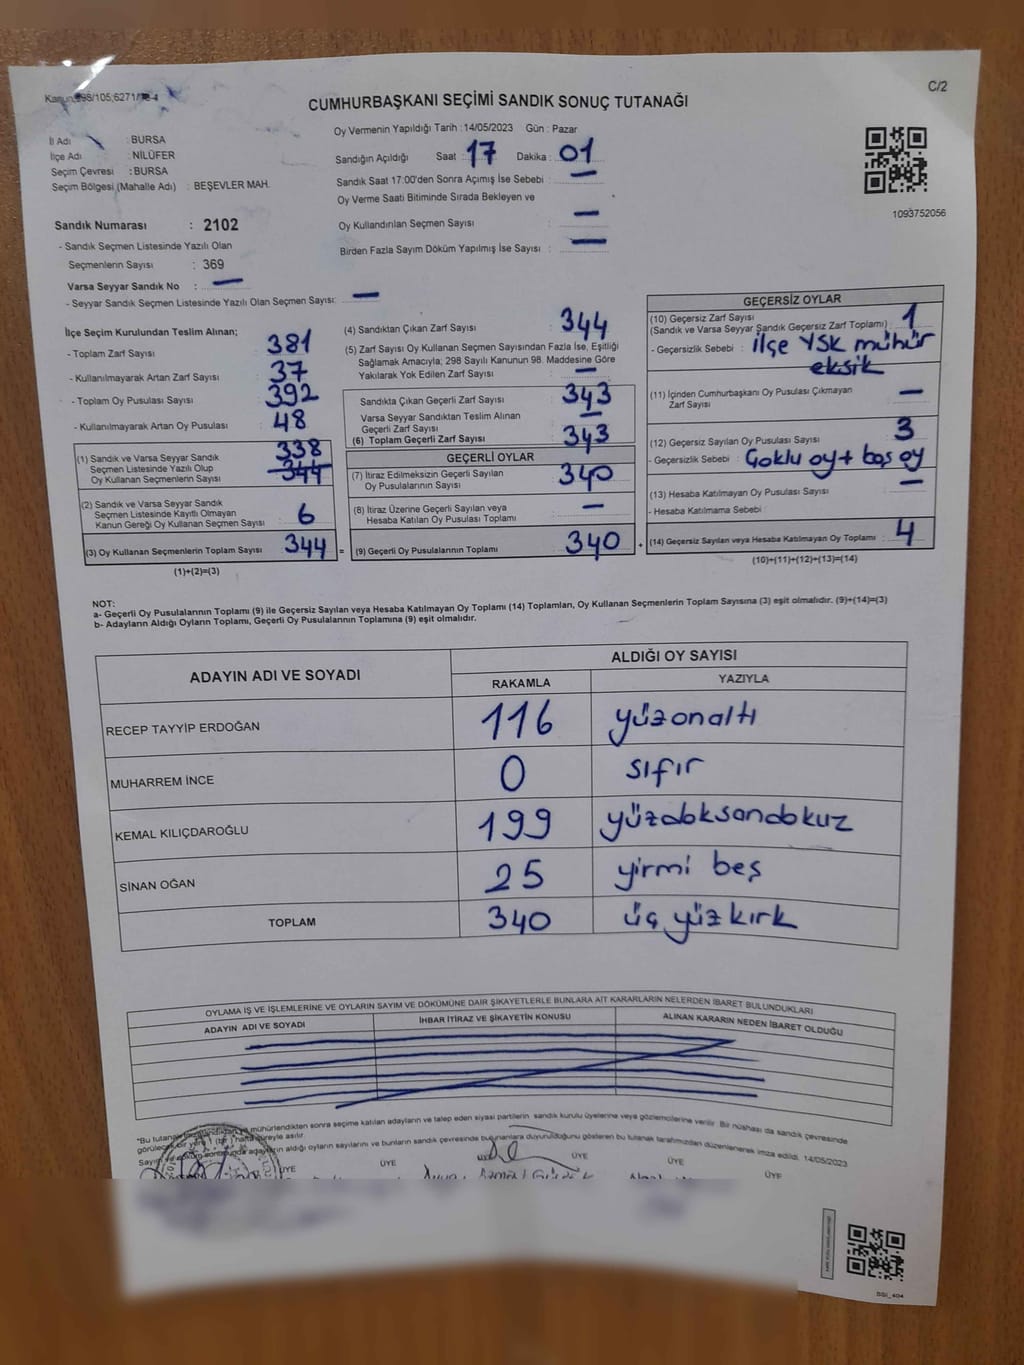 Kanun:298/105;6271/
C/2
CUMHURBAŞKANI SEÇİMİ SANDIK SONUÇ TUTANAĞI
İl Adı : BURSA
İlçe Adı : NİLÜFER
Seçim Çevresi : BURSA
Seçim Bölgesi (Mahalle Adı) : BEŞEVLER MAH.
Oy Vermenin Yapıldığı Tarih :14/05/2023 Gün : Pazar
Sandığın Açıldığı Saat : 17 Dakika : 01
Sandık Saat 17:00'den Sonra Açımış İse Sebebi : —
Oy Verme Saati Bitiminde Sırada Bekleyen ve
Oy Kullandırılan Seçmen Sayısı : —
Birden Fazla Sayım Döküm Yapılmış İse Sayısı : —
1093752056
Sandık Numarası : 2102
- Sandık Seçmen Listesinde Yazılı Olan
Seçmenlerin Sayısı : 369
Varsa Seyyar Sandık No : —
- Seyyar Sandık Seçmen Listesinde Yazılı Olan Seçmen Sayısı: —
İlçe Seçim Kurulundan Teslim Alınan;
- Toplam Zarf Sayısı : 381
- Kullanılmayarak Artan Zarf Sayısı : 37
- Toplam Oy Pusulası Sayısı : 392
- Kullanılmayarak Artan Oy Pusulası : 48
(1) Sandık ve Varsa Seyyar Sandık 338
Seçmen Listesinde Yazılı Olup
Oy Kullanan Seçmenlerin Sayısı : 344
(2) Sandık ve Varsa Seyyar Sandık
Seçmen Listesinde Kayıtlı Olmayan
Kanun Gereği Oy Kullanan Seçmen Sayısı : 6
(3) Oy Kullanan Seçmenlerin Toplam Sayısı : 344 =
(1)+(2)=(3)
(4) Sandıktan Çıkan Zarf Sayısı : 344
(5) Zarf Sayısı Oy Kullanan Seçmen Sayısından Fazla İse, Eşitliği
Sağlamak Amacıyla; 298 Sayılı Kanunun 98. Maddesine Göre
Yakılarak Yok Edilen Zarf Sayısı : —
Sandıkta Çıkan Geçerli Zarf Sayısı : 343
Varsa Seyyar Sandıktan Teslim Alınan
Geçerli Zarf Sayısı : —
(6) Toplam Geçerli Zarf Sayısı : 343
GEÇERLİ OYLAR
(7) İtiraz Edilmeksizin Geçerli Sayılan
Oy Pusulalarının Sayısı : 340
(8) İtiraz Üzerine Geçerli Sayılan veya
Hesaba Katılan Oy Pusulası Toplamı : —
(9) Geçerli Oy Pusulalarının Toplamı : 340 +
GEÇERSİZ OYLAR
(10) Geçersiz Zarf Sayısı
(Sandık ve Varsa Seyyar Sandık Geçersiz Zarf Toplamı) : 1
- Geçersizlik Sebebi : ilçe YSK mühür
eksik
(11) İçinden Cumhurbaşkanı Oy Pusulası Çıkmayan
Zarf Sayısı : —
(12) Geçersiz Sayılan Oy Pusulası Sayısı : 3
- Geçersizlik Sebebi : Çoklu oy + boş oy
(13) Hesaba Katılmayan Oy Pusulası Sayısı : —
- Hesaba Katılmama Sebebi :
(14) Geçersiz Sayılan veya Hesaba Katılmayan Oy Toplamı : 4
(10)+(11)+(12)+(13)=(14)
NOT:
a- Geçerli Oy Pusulalarının Toplamı (9) ile Geçersiz Sayılan veya Hesaba Katılmayan Oy Toplamı (14) Toplamları, Oy Kullanan Seçmenlerin Toplam Sayısına (3) eşit olmalıdır. (9)+(14)=(3)
b- Adayların Aldığı Oyların Toplamı, Geçerli Oy Pusulalarının Toplamına (9) eşit olmalıdır.
ADAYIN ADI VE SOYADI ALDIĞI OY SAYISI
RAKAMLA YAZIYLA
RECEP TAYYİP ERDOĞAN 116 yüzonaltı
MUHARREM İNCE 0 sıfır
KEMAL KILIÇDAROĞLU 199 yüzdoksandokuz
SİNAN OĞAN 25 yirmi beş
TOPLAM 340 üç yüz kırk
OYLAMA İŞ VE İŞLEMLERİNE VE OYLARIN SAYIM VE DÖKÜMÜNE DAİR ŞİKAYETLERLE BUNLARA AİT KARARLARIN NELERDEN İBARET BULUNDUKLARI
ADAYIN ADI VE SOYADI İHBAR İTİRAZ VE ŞİKAYETİN KONUSU ALINAN KARARIN NEDEN İBARET OLDUĞU
"Bu tutanak mühürlendikten sonra seçime katılan adayların ve talep eden siyasi partilerin sandık kurulu üyelerine veya gözlemcilerine verilir. Bir nüshası da sandık çevresinde
görülecek bir yere 1 (bir) hafta süreyle asılır.
Sayım ve döküm sonucunda adayların aldığı oyların sayılarını ve bunların sandık çevresinde bulunanlara duyurulduğunu gösteren bu tutanak tarafımızdan düzenlenerek imza edildi. 14/05/2023
ÜYE ÜYE ÜYE ÜYE ÜYE